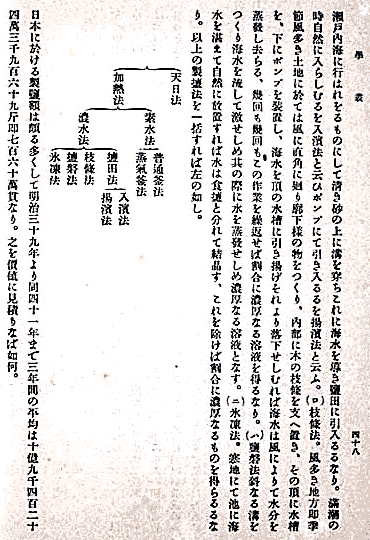 學叢
四十八
瀨戸内海に行はれをるものにして淸き砂の上に溝を穿ちこれに海水を導き鹽田に引入るるなり。滿潮の
時自然に入らしむるを入濱法と云ひポンプにて引き入るるを揚濱法と云ふ。(ロ)枝條法。風多き地方即季
節風多き土地に於ては風に直角に廻り廊下樣の物をつくり、內部に木の枝條を支へ置き、その頂に水槽
を、下にポンプを裝置し、海水を頂の水槽に引き揚げそれより落下せしむれば海水は風によりて水分を
蒸發し去らる、幾回も幾回もこの作業を繰返せば割合に濃厚なる溶液を得るなり。(ハ)鹽磐法斜なる溝を
つくり海水を流して激せしめ其の際に水を蒸發せしめ濃厚なる溶液となす。(ニ)氷凍法。寒地にて池に海
水を滿えて自然に放置すれば水は食鹽と分れて結晶す、これを除けば割合に濃厚なるものを得らるるな
り。以上の製鹽法を一括すれば左の如し。
天日法
加熱法
素水法
普通釜法
蒸氣釜法
濃水法
鹽田法
入濱法
揚濱法
枝條法
鹽磐法
氷凍法
日本に於ける製鹽額は頗る多くして明治三十九年より同四十一年まで三年間の平均は十億九千四百二十
四萬三千九百六十九斤即七百六十萬貫なり。之を價値に見積りなば如何。